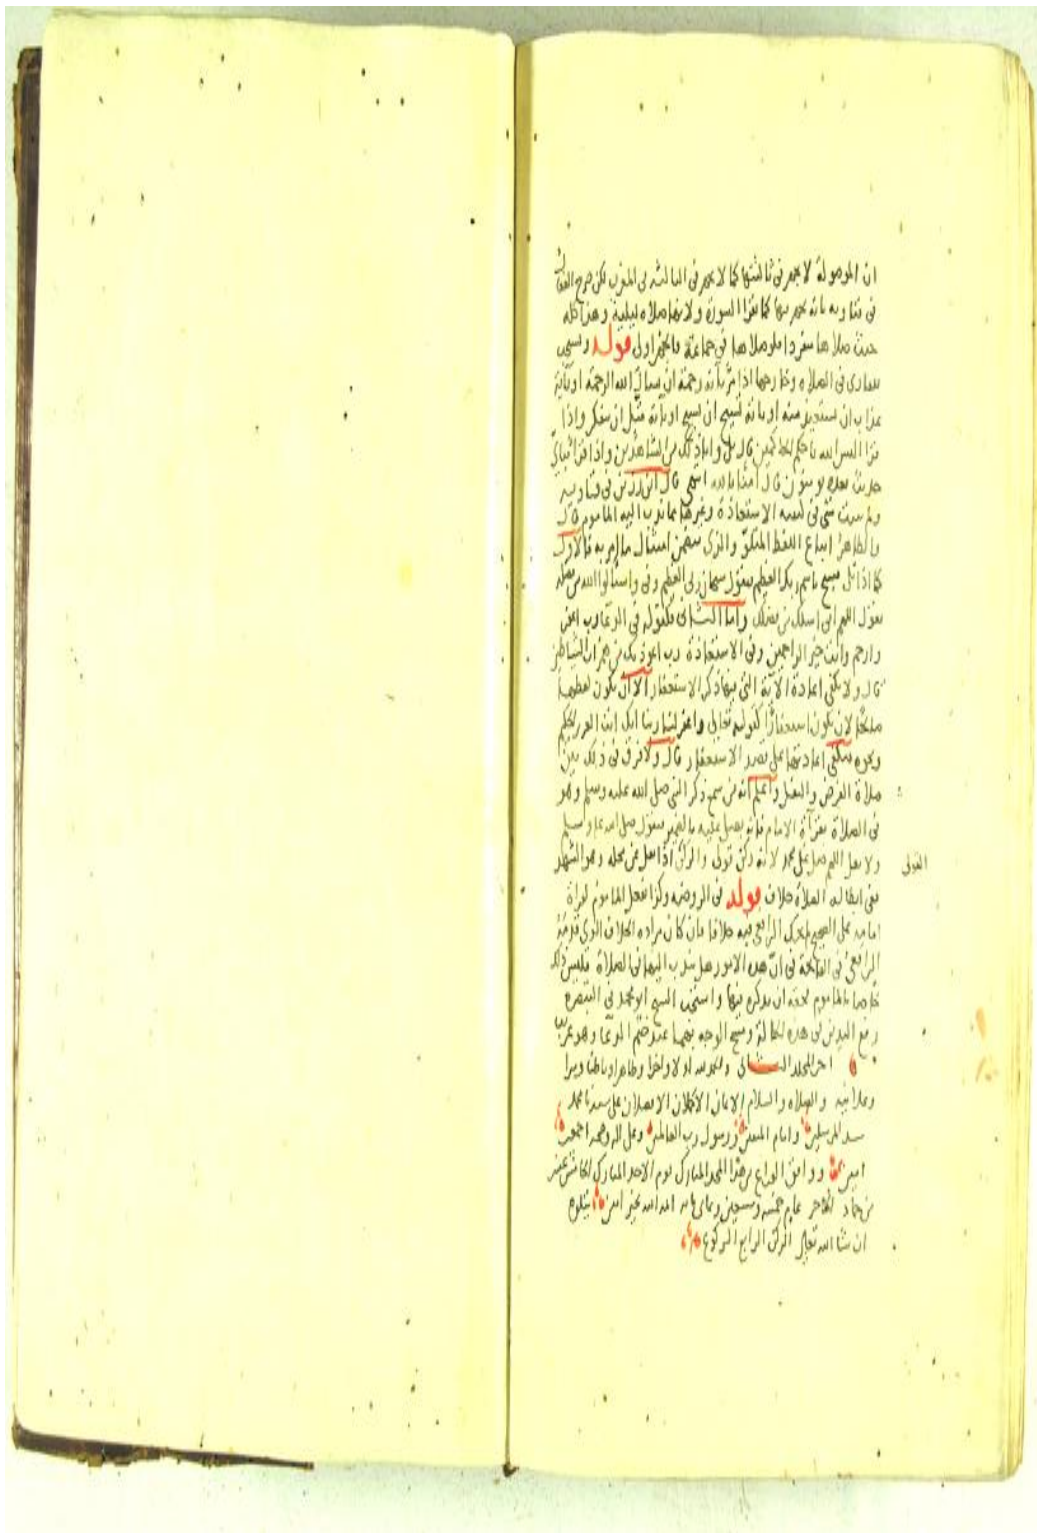 ان الموصولة لا يجهر في ثالثتها كما لا يجهر في الثالثة في المغرب لكن صرح
في فتاويه بانه يجهر بها كما يقرا السورة ولانها صلاه ليلية وهذا كله
حيث صلاها منفردا فلو صلاها في جماعة فالجهر اولى قوله ويستحب
للقارى في الصلاه وخارجها اذا مر بآية رحمة ان يسال الله الرحمة او بآية
عذاب ان يستعيذ منه او باية تسبيح ان يسبح او بآية مثل ان يتفكر واذا
قرا اليس الله باحكم الحاكمين قال بلى وانا على ذلك من الشاهدين واذا قرا فباي
حديث بعده يومنون قال امنا بالله انتهى قال ابن رزين في فتاويه
ولم يثبت شي في كيفية الاستعاذة وغيرها مما ندب اليه الماموم قال
والظاهر اتباع اللفظ المتلو والذي يتضمن امتثال ما امر به فالاول
كما اذا قال فسبح باسم ربك العظيم يقول سبحان ربي العظيم وفي واسألوا الله من فضله
يقول اللهم اني اسلك من فضلك واما الثاني فكقوله في الدعا رب اغفر
وارحم وانت خير الراحمين وفي الاستعاذة رب اعوذ بك من همزات الشياطين
قال ولا يكفي اعادة الآية التي فيها ذكر الاستغفار الا ان يكون لفظها
صالحا لان يكون استغفارا كقوله تعالى واغفر لنا ربنا انك انت العزيز الحكيم
ونحوه فيكفي اعادتها على قصد الاستغفار قال ولا فرق في ذلك بين
صلاة الفرض والنفل واعلم انه من سمع ذكر النبي صلى الله عليه وسلم وهو
في الصلاة بقرآة الامام فانه يصلي عليه بالضمير فيقول صلى الله عليه وسلم
ولا يقل اللهم صل على محمد لانه ركن قولي والركن اذا نقل عن محله وهو التشهد
القولي
ففي ابطاله الصلاة خلاف قوله في الروضه وكذا يفعل الماموم لقراة
امامه على الصحيح لم يحك الرافعي فيه خلافا فان كان مراده الخلاف الذي قدمه
الرافعي في الفاتحة في ان هذه الامور هل يندب اليها في الصلاة فليس ذلك
خاصا بالماموم فحقه ان يذكره فيها واستحب الشيخ ابو محمد في التبصره
رفع اليدين في هذه الحالة ومسح الوجه بهما عند ختم الدعا وهو غريب
اخر المجلد الثاني والحمد لله اولا واخرا وظاهرا وباطنا وسرا
وعلانيه والصلاه والسلام الاتمان الاكملان الافضلان على سيدنا محمد
سيد المرسلين وامام المتقين ورسول رب العالمين وعلى اله وصحبه اجمعين
امين ووافق الفراغ من هذا المجلد المبارك يوم الاحد المبارك الخامس عشر
من جماد الاخر عام خمسه وسبعين وثماني مايه احسن الله بخير امين يتلوه
ان شا الله تعالى الركن الرابع الركوع